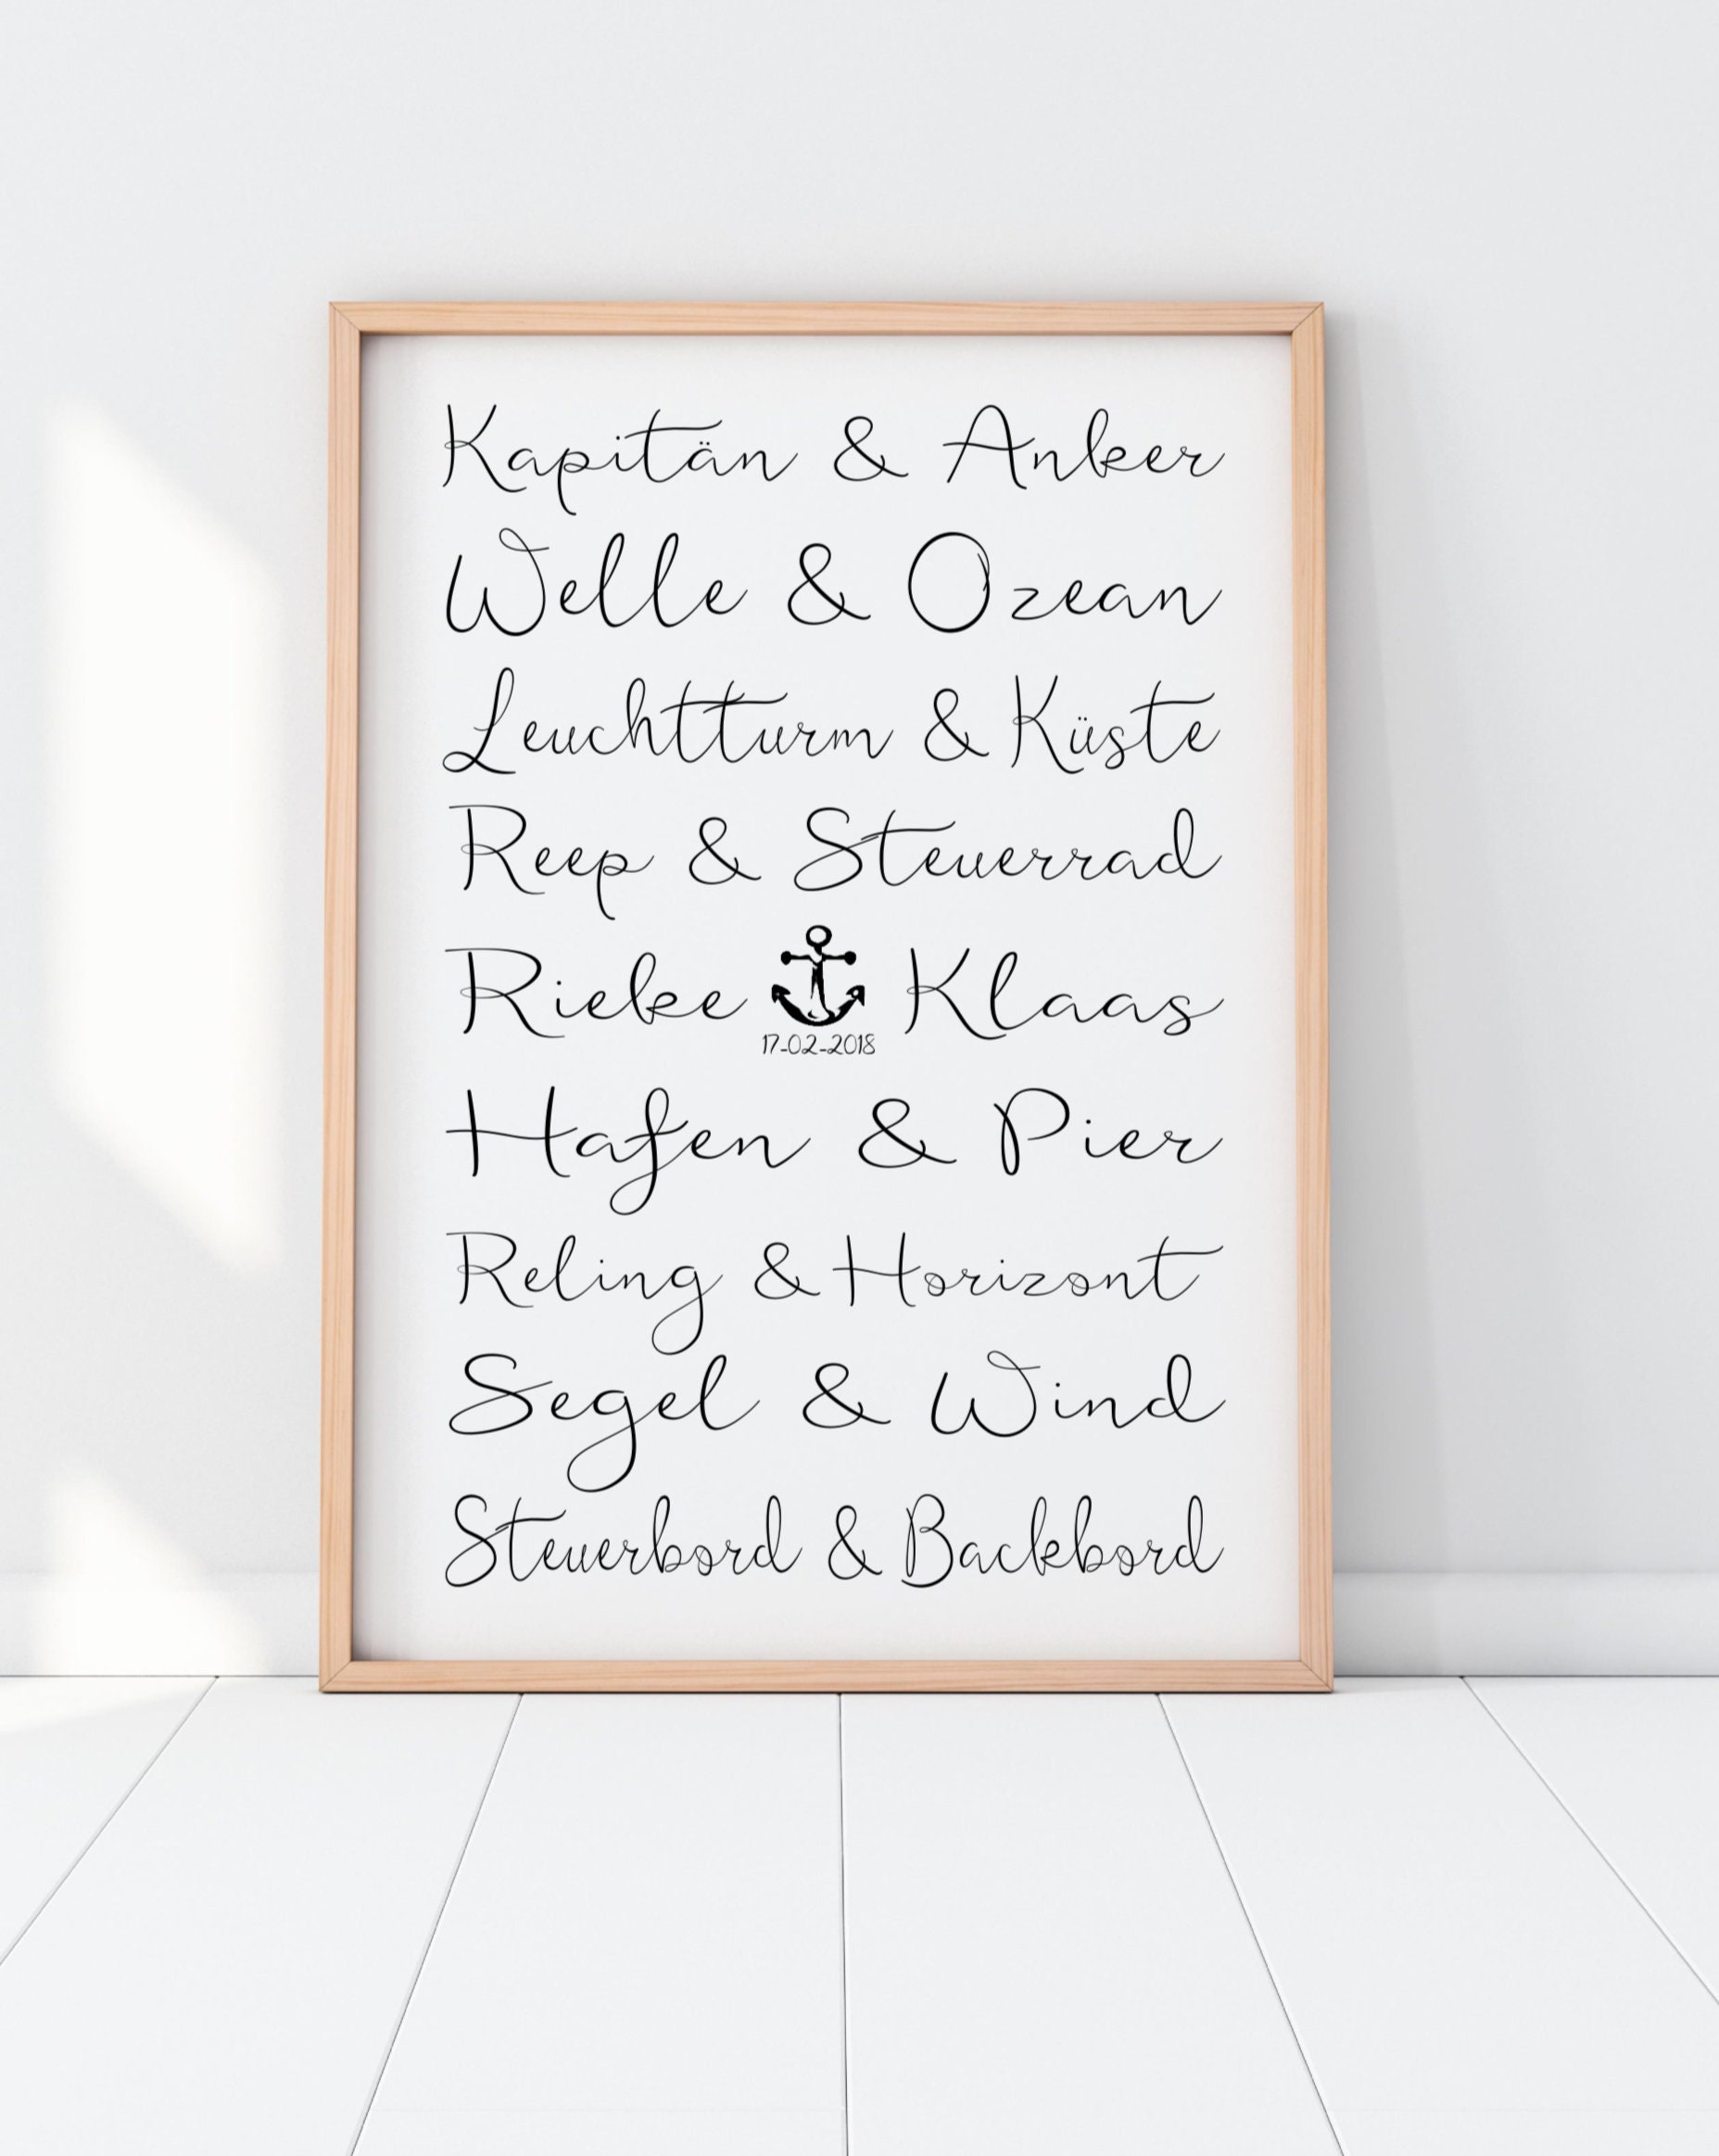 Kapitän & Anker
Welle & Ozean
Leuchtturm & Küste
Reep & Steuerrad
Rieke Klaas
17-02-2018
Hafen & Pier
Reling & Horizont
Segel & Wind
Steuerbord & Backbord